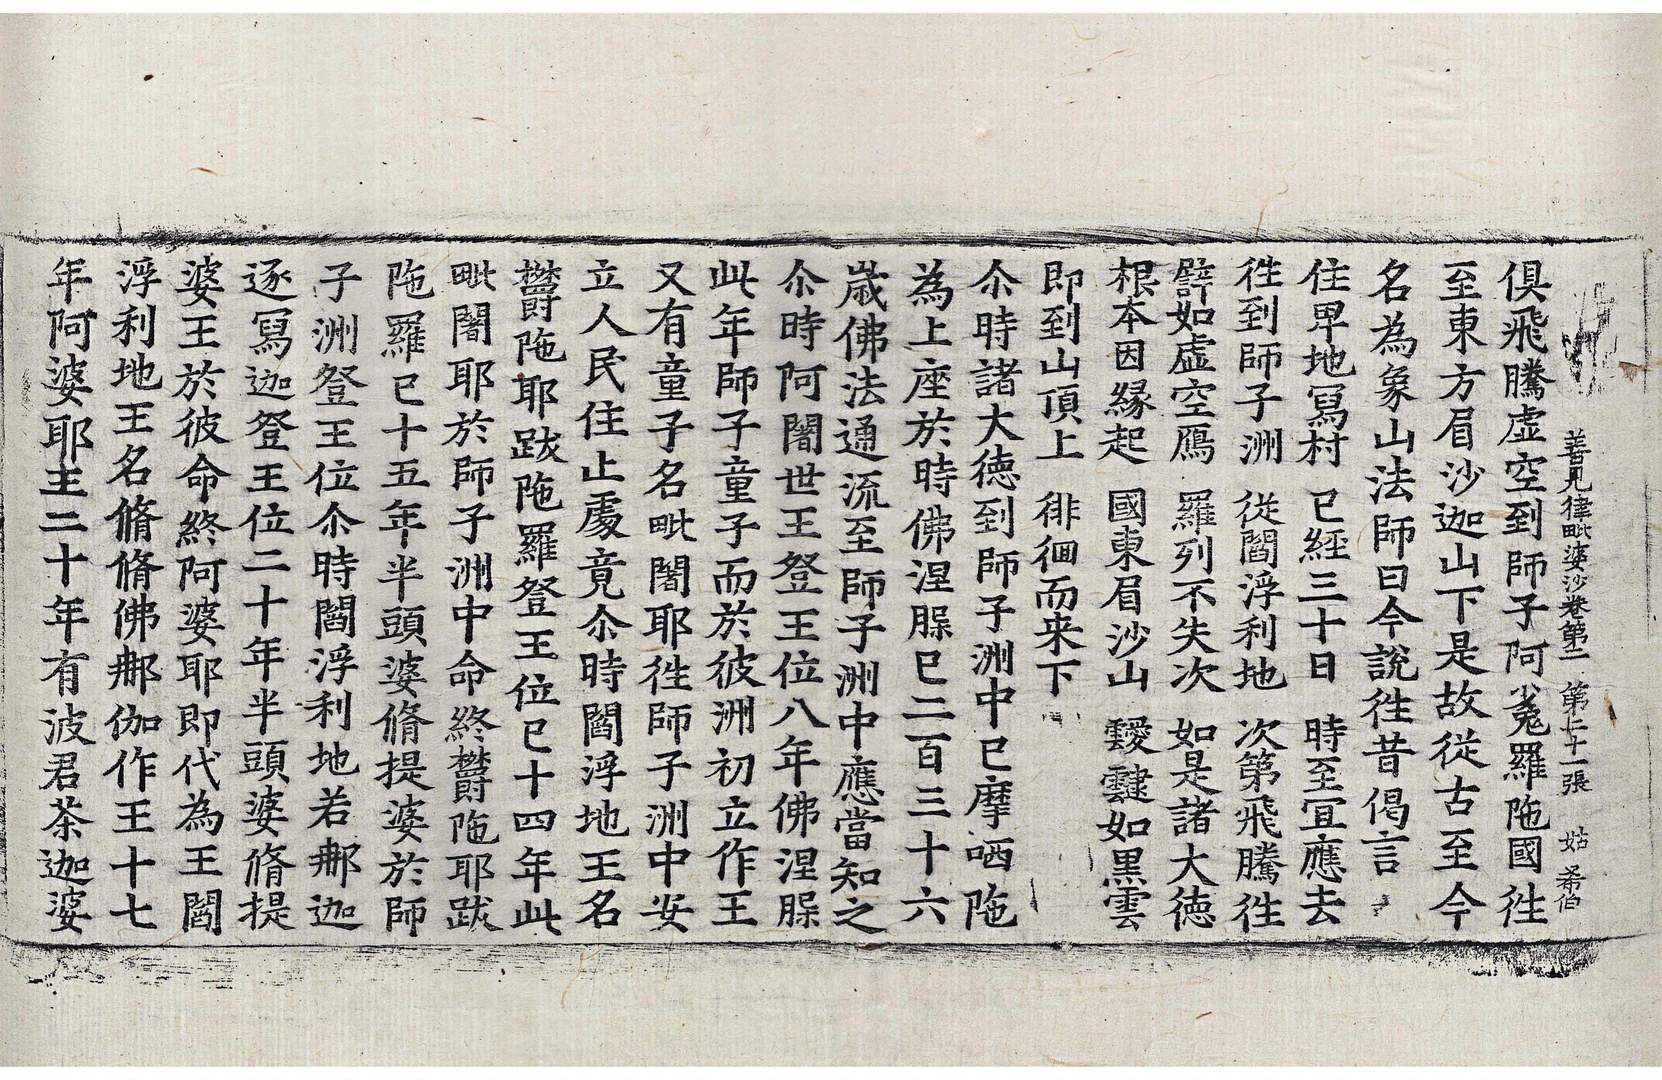 善見律毗婆沙卷第二　第二十一張　姑　希伯
俱飛騰虛空到師子阿㝹羅陁國徃
至東方眉沙迦山下是故從古至今
名為象山法師曰今說徃昔偈言
住卑地寫村　已經三十日　時至宜應去
徃到師子洲　從閻浮利地　次第飛騰徃
譬如虛空鴈　羅列不失次　如是諸大德
根本因緣起　國東眉沙山　靉靆如黑雲
即到山頂上　徘徊而来下
尒時諸大德到師子洲中已摩哂陁
為上座於時佛涅槃已二百三十六
歲佛法通流至師子洲中應當知之
尒時阿闍世王登王位八年佛涅槃
此年師子童子而於彼洲初立作王
又有童子名毗闍耶徃師子洲中安
立人民住止處竟尒時閻浮地王名
欝陁耶跋陁羅登王位已十四年此
毗闍耶於師子洲中命終欝陁耶跋
陁羅已十五年半頭婆脩提婆於師
子洲登王位尒時閻浮利地若𨚗迦
逐寫迦登王位二十年半頭婆脩提
婆王於彼命終阿婆耶即代為王閻
浮利地王名脩脩佛𨚗伽作王十七
年阿婆耶王二十年有波君茶迦婆